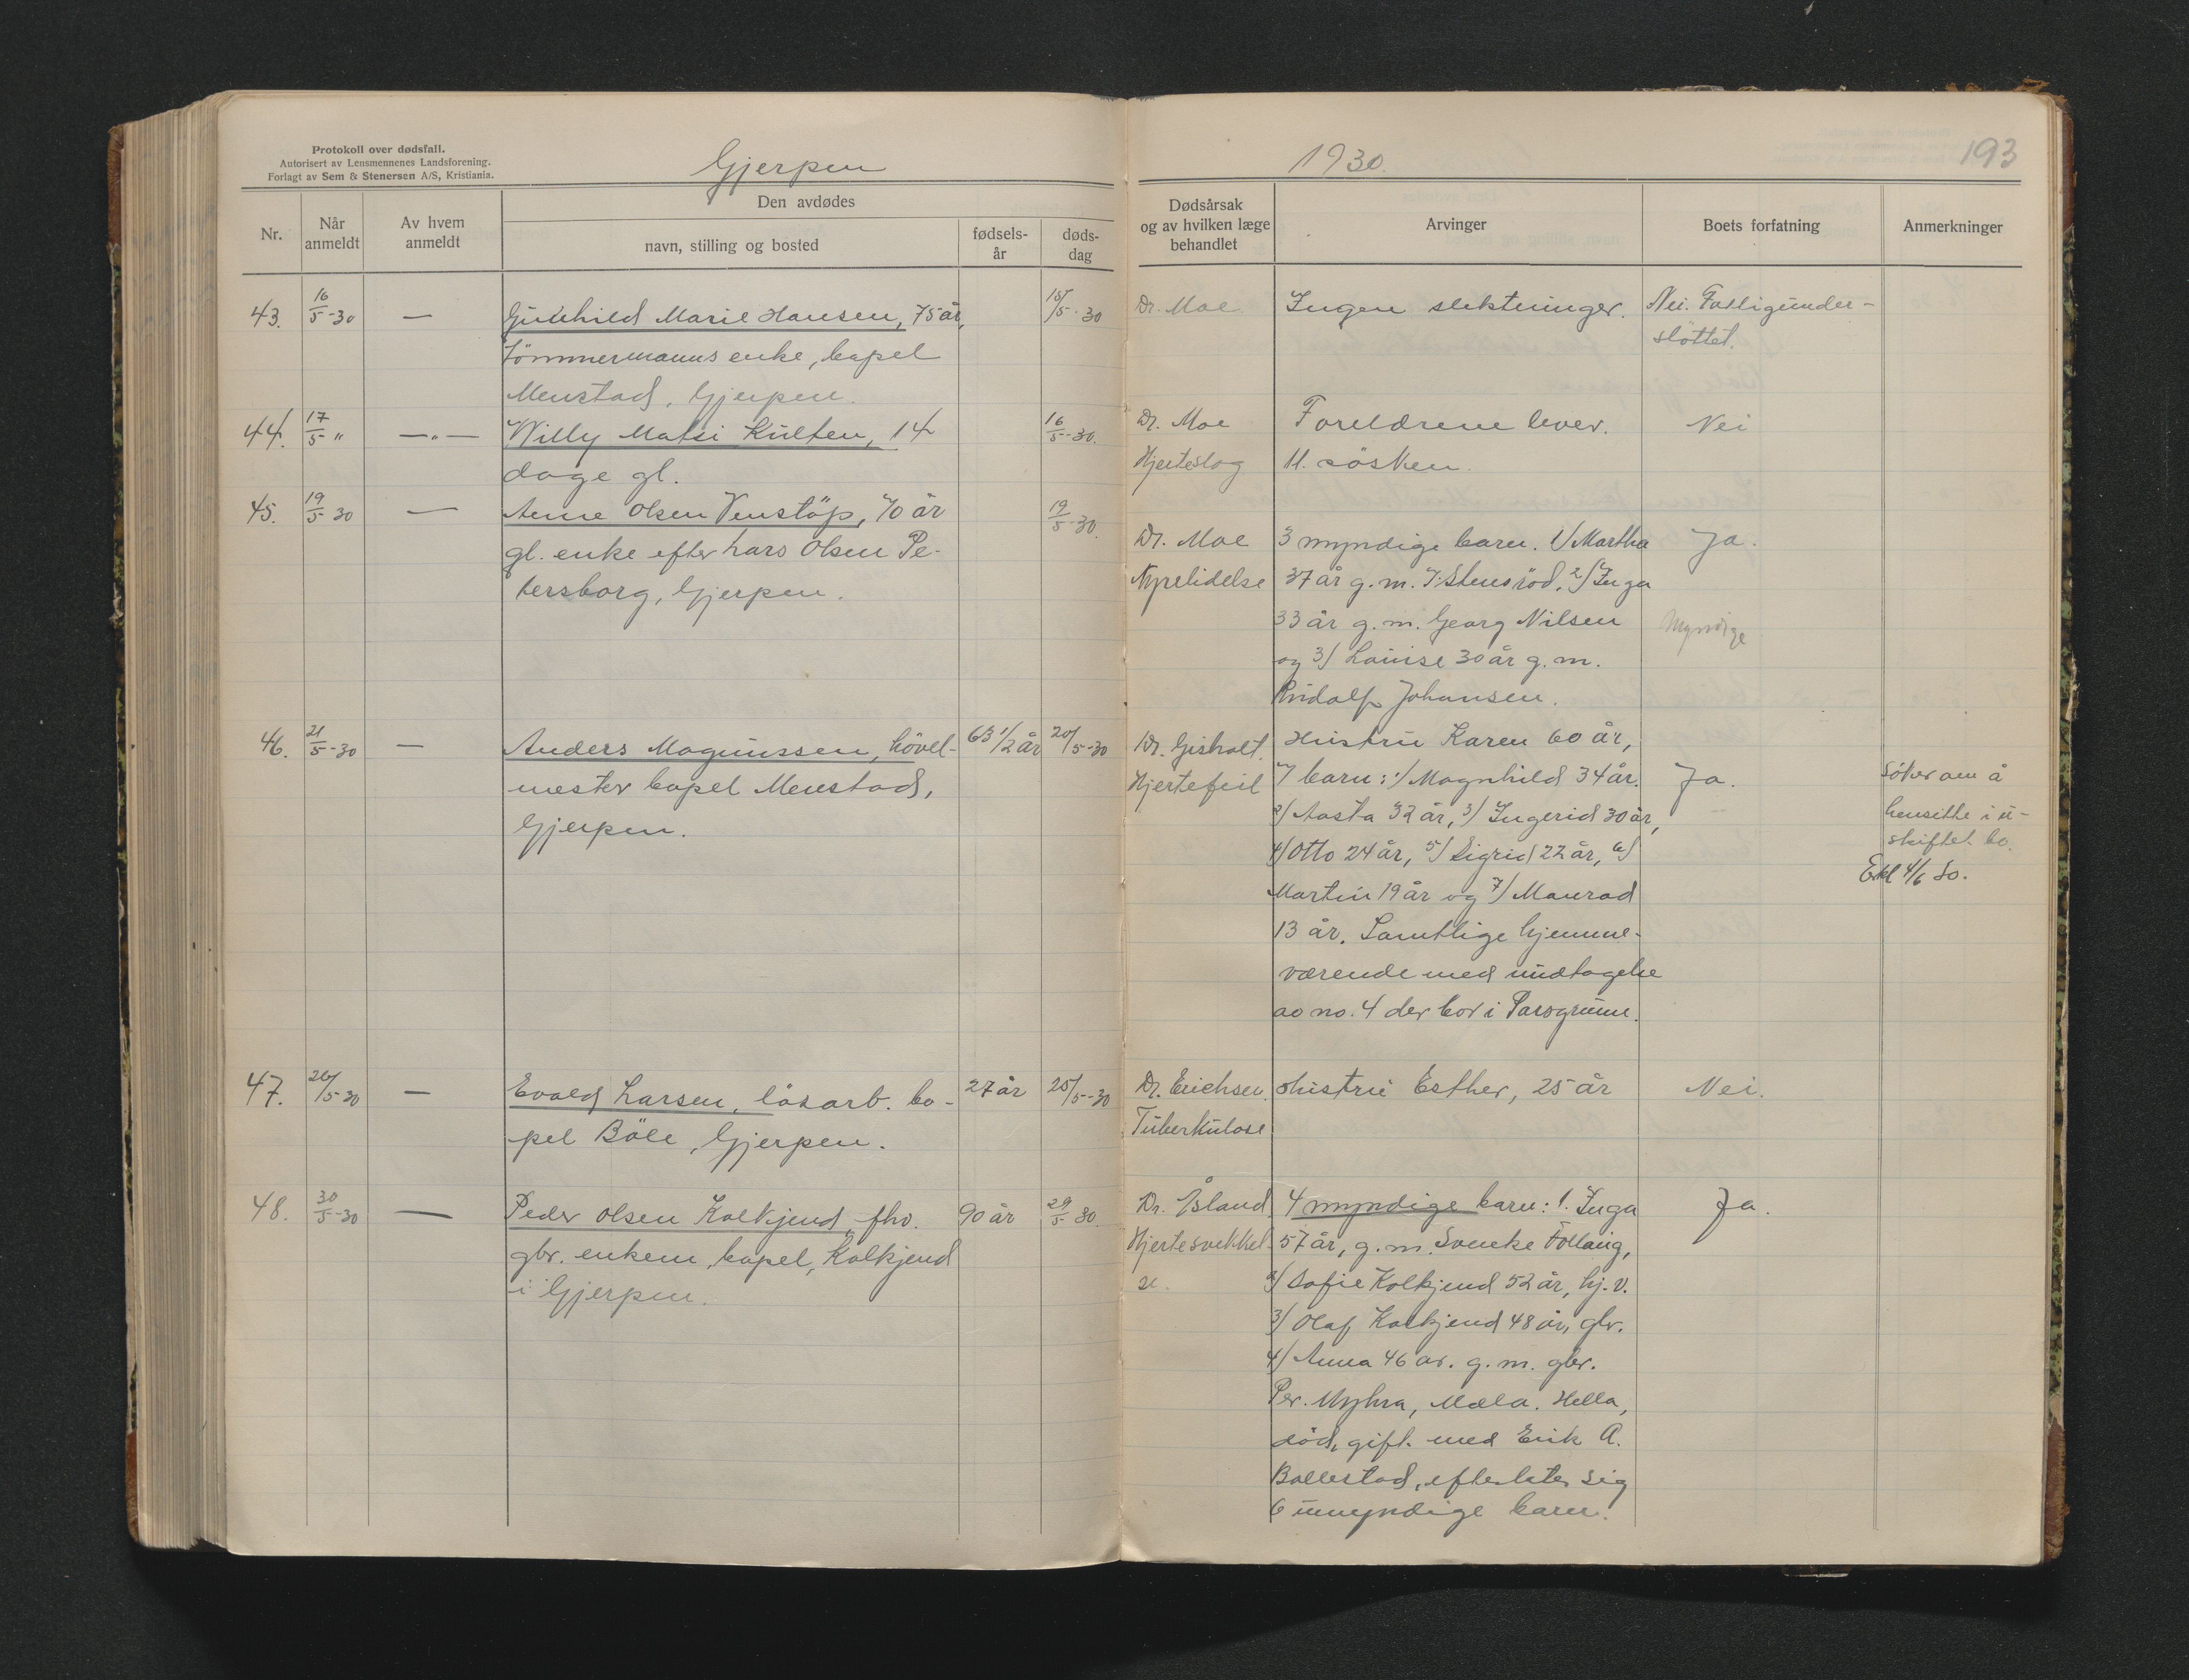 Protokoll over dødsfall.
Autorisert av Lensmennenes Landsforening.
Forlagt av Sem & Stenersen A/S, Kristiania.
Gjerpen
1930.
193
Nr.
Når anmeldt
Av hvem anmeldt
Den avdødes
navn, stilling og bosted
fødsels-år
døds-dag
Dødsårsak og av hvilken læge behandlet
Arvinger
Boets forfatning
Anmerkninger
43. 16/5-30 — Gunhild Marie Hansen, 75 år, 15/5-30 Dr. Moe Ingen slektninger. Nei. Fattigunder-
tömmermanns enke, bopel støttet.
Menstad, Gjerpen.
44. 17/5 " —"— Willy Matsi Kulten, 14 16/5-30. Dr. Moe Foreldrene lever. Nei
dage gl. Hjerteslag 11. søsken.
45. 19/5 30 — Anne Olsen Venstöp, 70 år 19/5-30.
gl. enke efter Lars Olsen Pe- Dr. Moe 3 myndige barn. 1/ Martha Ja.
tersborg, Gjerpen. Nyrelidelse 37 år g.m. J. Stensrød, 2/ Inga
33 år g.m. Georg Nilsen Myndige
og 3/ Louise 30 år g.m.
Rudolf Johansen.
46. 21/5-30 — Anders Magnussen, hövel- 63 1/2 år 20/5-30 Dr. Gisholt. Hustru Karen 60 år,
mester bopel Menstad, Hjertefeil 7 barn: 1/ Magnhild 34 år. Ja. Søker om å
Gjerpen. 2/ Aasta 32 år, 3/ Ingerid 30 år, hensitte i u-
4/ Otto 24 år, 5/ Sigrid 22 år, 6/ skiftet bo.
Martin 19 år og 7/ Manrad Erkl 4/6 30.
13 år. Samtlige hjemme-
værende med undtagelse
av no. 4 der bor i Porsgrunn.
47. 26/5-30 — Evald Larsen, løsarb. bo- 27 år 25/5-30 Dr. Erichsen. Hustru Esther, 25 år Nei.
pel Böle, Gjerpen. Tuberkulose
48. 30/5-30 — Peder Olsen Kolkjend, fhv. 90 år 29/5 30. Dr. Østand 4 myndige barn: 1. Inga Ja.
gbr. enkem, bopel, Kolkjend Hjertesvekkel- 57 år, g.m. Svenke
i Gjerpen. se. 2/ Sofie Kolkjend 52 år, hj.v.
3/ Olaf Kolkjend 48 år, gbr.
4/ Anna 46 år. g.m. gbr.
Per. Myhra, Mæla. Hella,
död, gift med Erik A.
Bollestad, efterlater sig
6 umyndige barn.